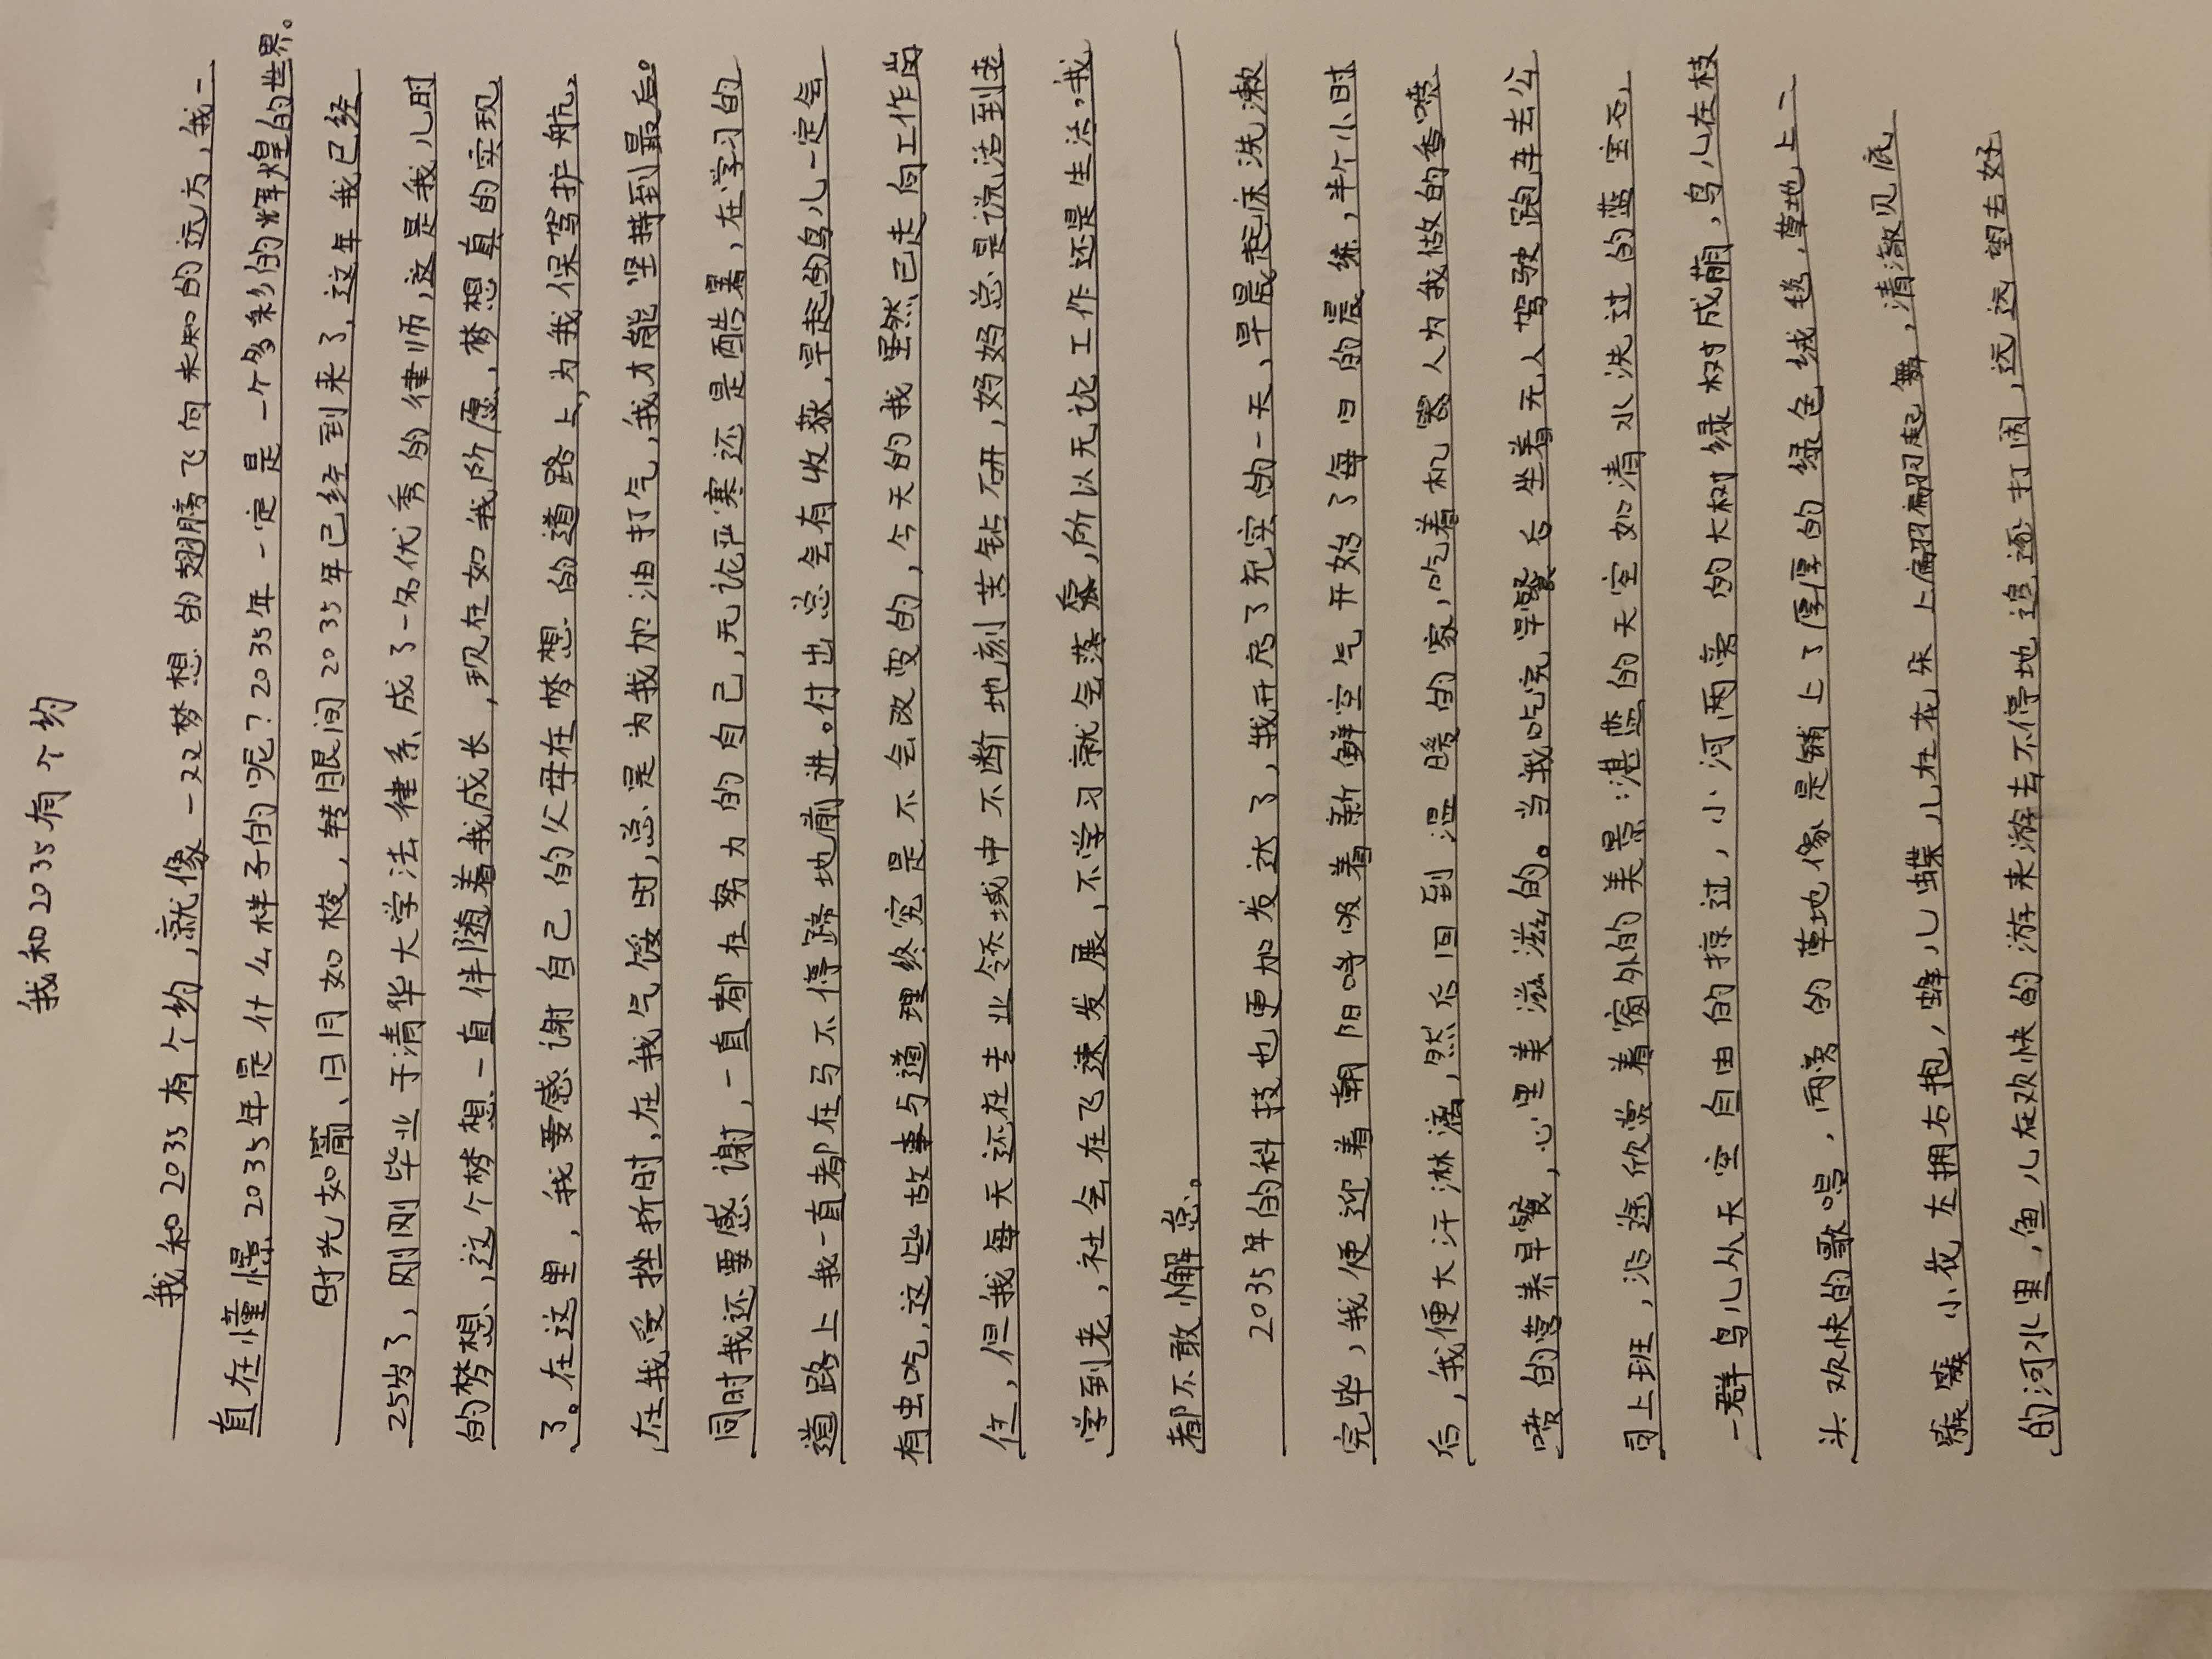 我和2035有个约
我和2035有个约,就像一双梦想的翅膀飞向未知的远方,我一
直在憧憬2035年是什么样子的呢?2035年一定是一个多彩的辉煌的世界。
时光如箭、日月如梭,转眼间2035年已经到来了,这年我已经
25岁了,刚刚毕业于清华大学法律系成了一名优秀的律师,这是我儿时
的梦想,这个梦想一直伴随着我成长,现在如我所愿,梦想真的实现
了。在这里,我要感谢自己的父母在梦想的道路上,为我保驾护航,
在我受挫折时,在我气馁时,总是为我加油打气,我才能坚持到最后。
同时我还要感谢,一直都在努力的自己,无论严寒还是酷暑,在学习的
道路上我一直都在马不停蹄地前进。付出总会有收获,早起的鸟儿一定会
有虫吃,这些故事与道理终究是不会改变的,今天的我虽然已走向工作岗
位,但我每天还在专业领域中不断地刻苦钻研,妈妈总是说活到老
学到老,社会在飞速发展,不学习就会落后,所以无论工作还是生活,我
都不敢懈怠。
2035年的科技也更加发达了,我开启了充实的一天,早晨起床洗漱
完毕,我便迎着朝阳呼吸着新鲜空气开始了每日的晨练,半个小时
后,我便大汗淋漓,然后回到温暖的家,吃着机器人为我做的香喷
喷的营养早餐,心里美滋滋的。当我吃完早餐后坐着无人驾驶跑车去公
司上班,沿途欣赏着窗外的美景:湛蓝的天空如清水洗过的蓝宝石,
一群鸟儿从天空自由的掠过,小河两旁的大树绿树成荫,鸟儿在枝
头欢快的歌唱,两旁的草地像是铺上了厚厚的绿色绒毯,草地上一
簇簇小花左拥右抱,蜂儿蝶儿在花朵上翩翩起舞,清澈见底
的河水里,鱼儿在欢快的游来游去不停地追逐打闹,远远望去好